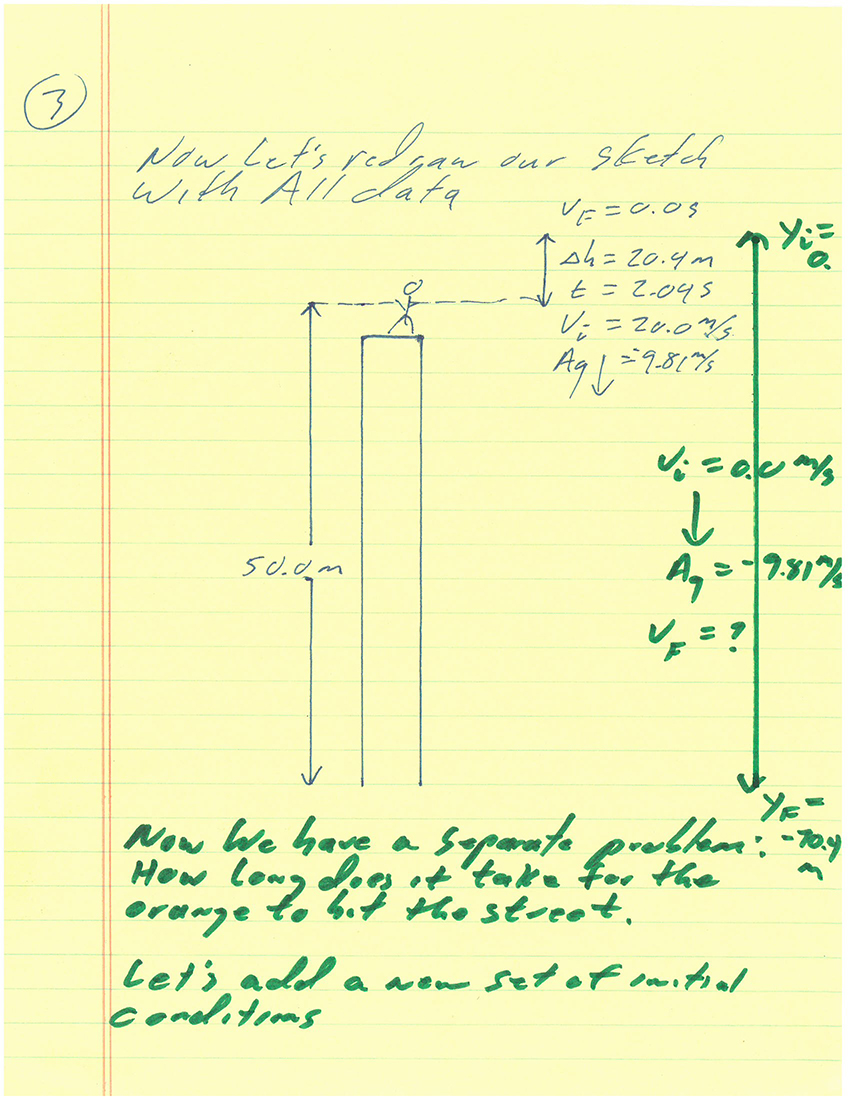 3
Now Let's redraw our sketch
with All data
V_F = 0.0s
Δh = 20.4m
t = 2.04s
V_i = 20.0 m/s
A_g ↓ = -9.81 m/s
50.0m
y_i =
0.
V_i = 0.0 m/s
↓
A_g = -9.81 m/s
V_F = ?
y_F =
-70.4
m
Now We have a separate problem:
How long does it take for the
orange to hit the street.
Let's add a new set of initial
conditions